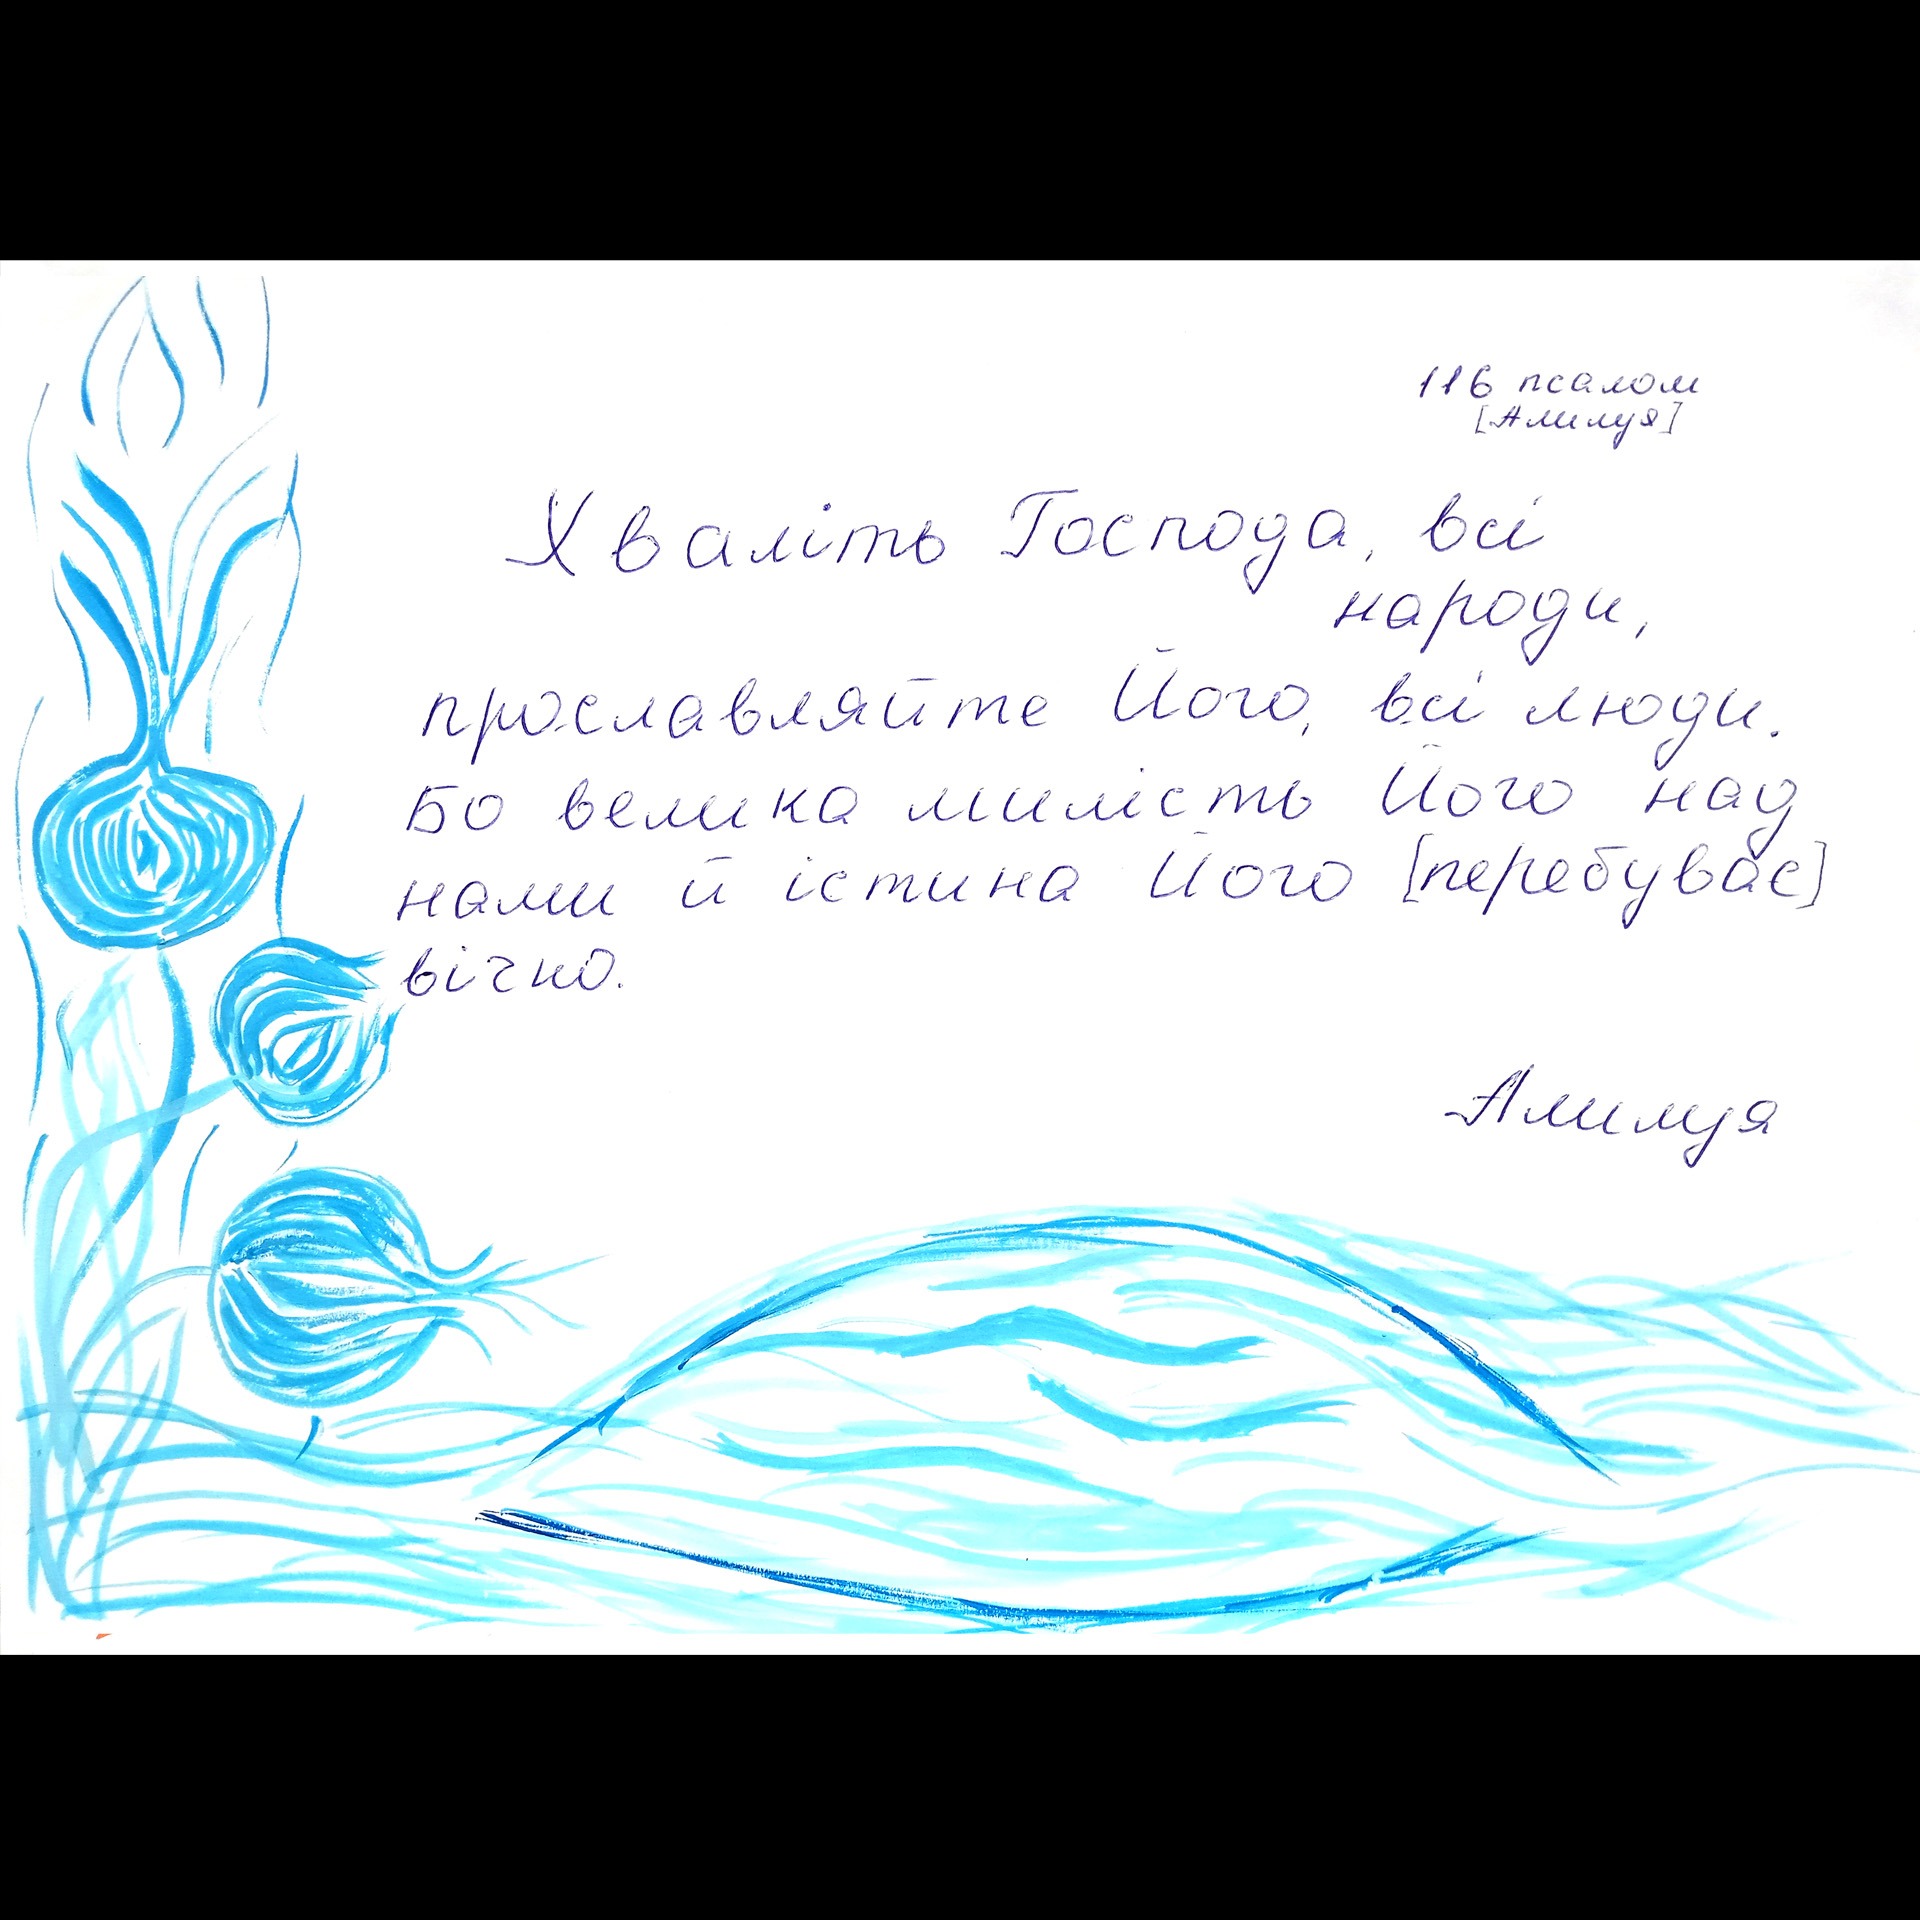 116 псалом
[Алилуя]
Хваліть Господа, всі
народи,
прославляйте Його, всі люди.
Бо велика милість Його над
нами й істина Його [перебуває]
вічно.
Алилуя